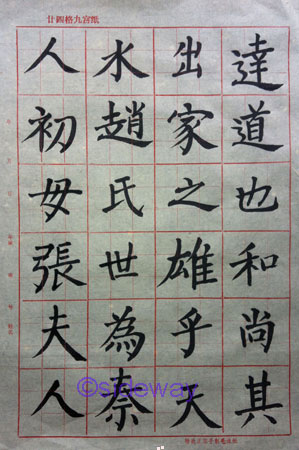 廿四格九宮紙
達道也和尚其
出家之雄乎天
水趙氏世為秦
人初母張夫人
©sideway